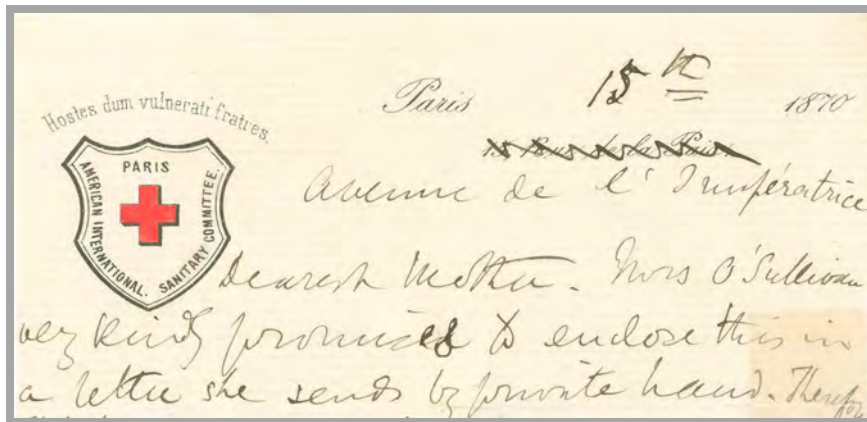 Hostes dum vulnerati fratres.
PARIS
AMERICAN INTERNATIONAL. SANITARY COMMITTEE.
Paris 15th 1870
13 Rue de la Paix.
Avenue de l'Impératrice
Dearest Mother. Mrs O'Sullivan
very kindly promises to enclose this in
a letter she sends by private hand.